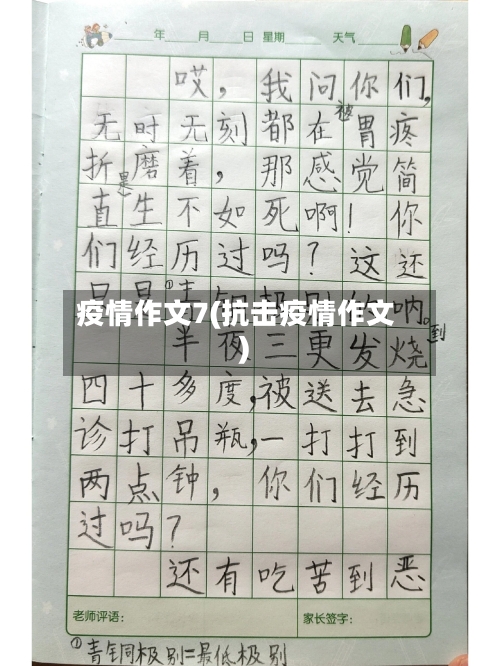 年 月 日 星期 天气
哎，我问你们，
无时无刻都在被胃疼
折磨着，那感觉简
直是生不如死啊！你
们经历过吗？这还
只是①青铜级别的呐。
疫情作文7(抗击疫情作文
)
半夜三更发烧到
四十多度，被送去急
诊打吊瓶，一打打到
两点钟，你们经历
过吗？
还有吃苦到恶
老师评语：
家长签字：
①青铜极别=最低极别